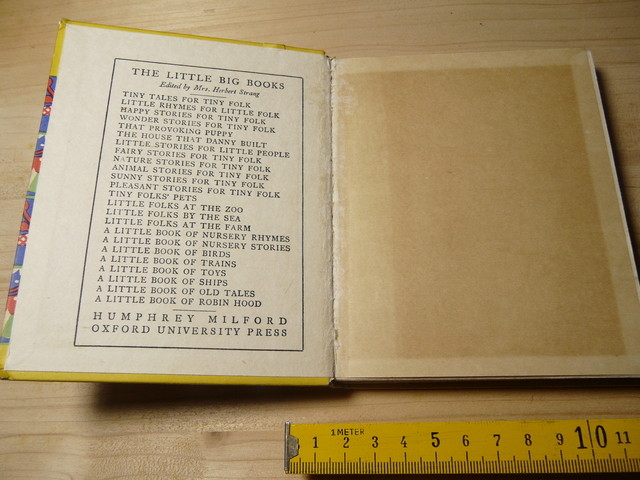 THE LITTLE BIG BOOKS
Edited by Mrs. Herbert Strang
TINY TALES FOR TINY FOLK
LITTLE RHYMES FOR LITTLE FOLK
HAPPY STORIES FOR TINY FOLK
WONDER STORIES FOR TINY FOLK
THAT PROVOKING PUPPY
THE HOUSE THAT DANNY BUILT
LITTLE STORIES FOR LITTLE PEOPLE
FAIRY STORIES FOR TINY FOLK
NATURE STORIES FOR TINY FOLK
ANIMAL STORIES FOR TINY FOLK
SUNNY STORIES FOR TINY FOLK
PLEASANT STORIES FOR TINY FOLK
TINY FOLKS' PETS
LITTLE FOLKS AT THE ZOO
LITTLE FOLKS BY THE SEA
LITTLE FOLKS AT THE FARM
A LITTLE BOOK OF NURSERY RHYMES
A LITTLE BOOK OF NURSERY STORIES
A LITTLE BOOK OF BIRDS
A LITTLE BOOK OF TRAINS
A LITTLE BOOK OF TOYS
A LITTLE BOOK OF SHIPS
A LITTLE BOOK OF OLD TALES
A LITTLE BOOK OF ROBIN HOOD
HUMPHREY MILFORD
OXFORD UNIVERSITY PRESS
1 METER
1 2 3 4 5 6 7 8 9 10 11